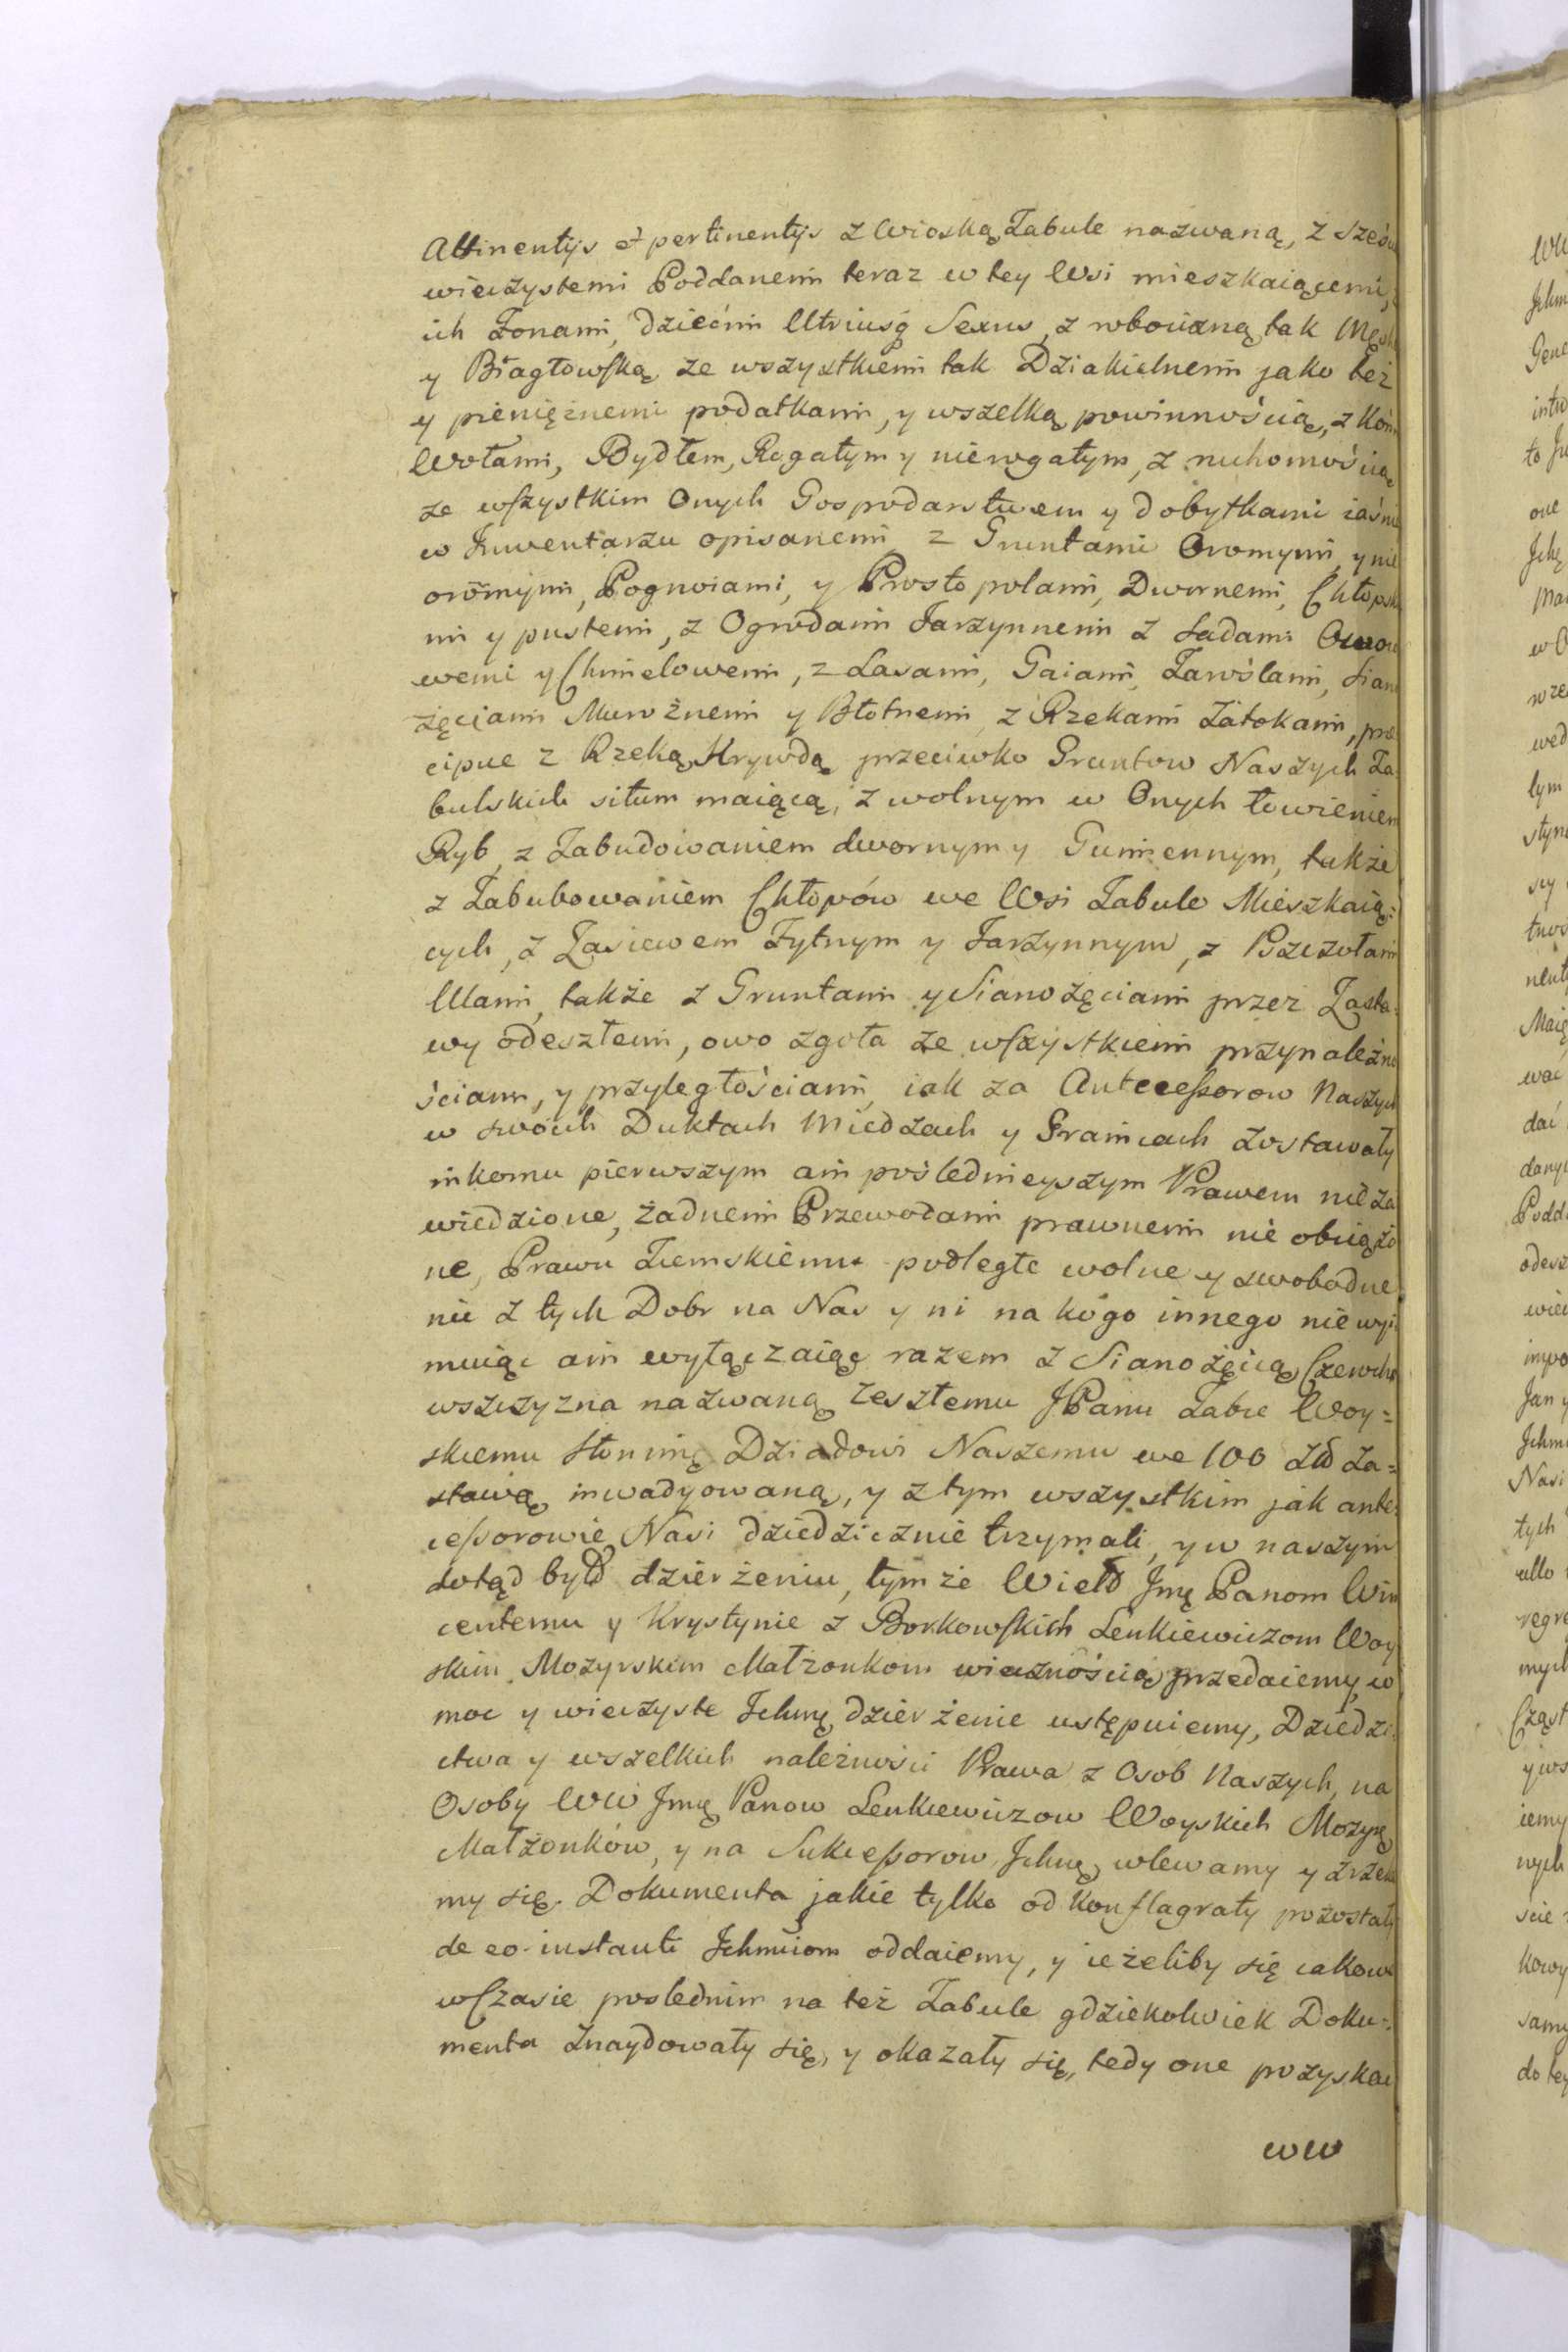 Attinentijs et pertinentijs z Wioską Zabule nazwaną, z sześciu
wieczystemi Poddanemi teraz w tey Wsi mieszkaiącemi,
ich Żonami, dziećmi Utriusq Sexus, z robocizną tak Męską
y Białgłowską ze wszystkiemi tak Dziakielnemi jako też
y pieniężnemi podatkami, y wszelką powinnością, z Końmi
Wołami, Bydłem, Rogatym y nierogatym, z ruchomością
ze wszystkim Onych Gospodarstwem y dobytkami iaśnie
w Inwentarzu opisanemi z Gruntami Oromymi y nie
oromymi, Pognoiami, y Prosto polami, Dwornemi, Chłopski
mi y pustemi, z Ogrodami Jarzynnemi z Sadami Owoco
wemi y Chmielowemi, z Lasami, Gaiami, Zaroślami, Siano
żęciami Murożnemi y Błotnemi, z Rzekami Zatokami, prae
cipue z Rzeką Hrywdą przeciwko Gruntow Naszych Za
bulskich situm maiącą, z wolnym w Onych łowieniem
Ryb, z Zabudowaniem dwornym y Gumiennym, także
z Zabubowaniem Chłopów we Wsi Zabule Mieszkaią=
cych, z Zasiewem Żytnym y Jarzynnym, z Pszczołami
Ulami, także z Gruntami y Sianożęciami przez Zasta=
wy odeszłemi, owo zgoła ze wszystkiemi przynależno
ściami, y przyległościami, iak za Antecessorow Naszych
w swoich Duktach Miedzach y Granicach zostawały
nikomu pierwszym ani poślednieyszym Prawem nieza
wiedzione, żadnemi Przewodami prawnemi nie obciążo
ne, Prawu Ziemskiemu podległe wolne y swobodne
nic z tych Dobr na Nas y ni na kogo innego niewyi
muiąc ani wyłączaiąc razem z Sianożęcią
wszczyzna nazwaną zeszłemu JPanu Zabie Woy=
skiemu Słonimę Dziadowi Naszemu we 100 Zł Za=
stawą inwadyowaną, y z tym wszystkim jak ante
cessorowie Nasi dziedzicznie trzymali, y w naszym
dotąd było dzierżeniu, tymże Wielo Jmę Panom Win
centemu y Krystynie z Borkowskich Lenkiewiczom Woy
skim Mozyrskim Małżonkom wiecznością przedaiemy, w
moc y wieczyste Ichmę dzierżenie ustępuiemy, Dziedzi
ctwa y wszelkich należności Prawa z Osob Naszych, na
Osoby WW Jmę Panow Lenkiewiczow Woyskich Mozyrę
Małżonków, y na Sukcessorow Ichmę wlewamy y zrzeka
my się. Dokumenta jakie tylko od Konflagraty pozostały
de eo instanti Ichmciom oddaiemy, y ieżeliby się iakowe
w Czasie poslednim na też Zabule gdziekolwiek Doku=
menta znaydowały się, y okazały się, tedy one pozyskać
WW